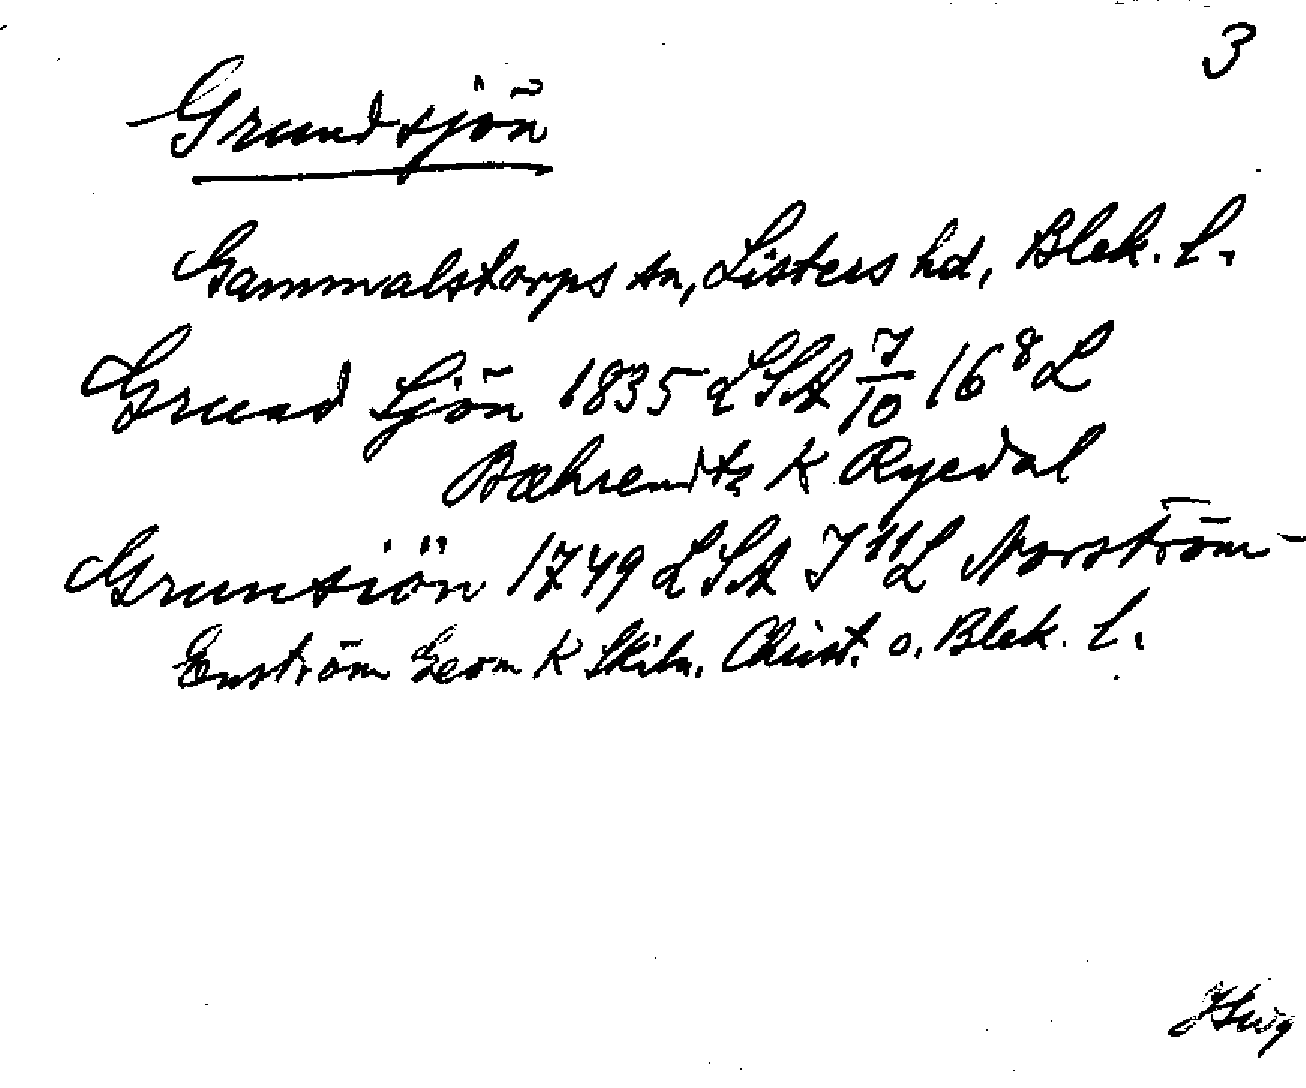 3
Grundsjön
Gammalstorps sn, Listers hd, Blek. l.
Grund Sjön 1835 LSA 7/10 16⁸ L
Bæhrendtz K Ryedal
Gruntsiön 1749 LSA J¹¹L Norström-
Enström Geom K Skiln. Christ. o. Blek. l.